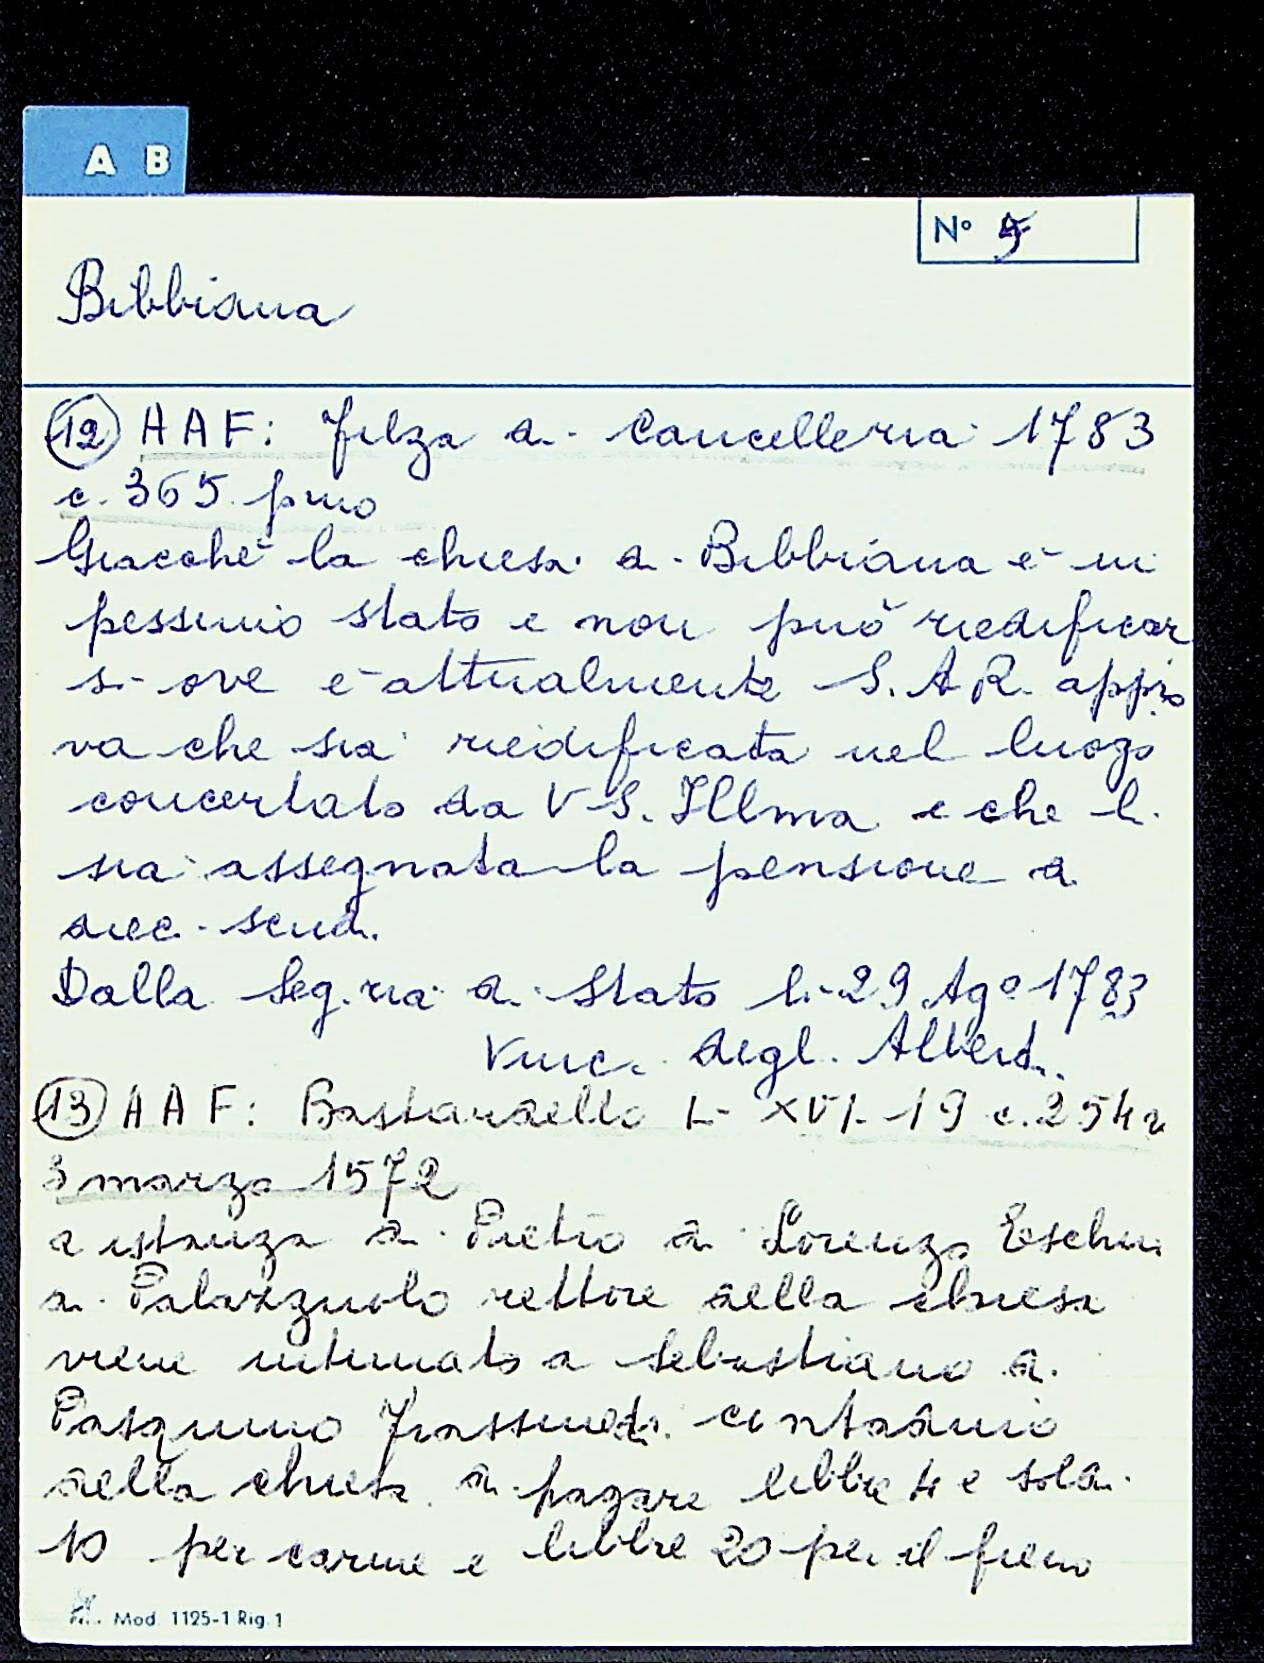 A B
N° 5
Bibbiana
12 AAF: Filza di Cancelleria 1783
c. 365 primo
Giacchè la chiesa di Bibbiana è in
pessimo stato e non può riedificar
si ove è attualmente S.A.R. appro
va che sia riedificata nel luogo
concertato da V.S. Illma e che li
sia assegnata la pensione di
dieci scudi.
Dalla Seg.ria di Stato li 29 Ago 1783
Vinc. degli Alberti.
13 AAF: Bastardello L- XVI-19 c.254v
3 marzo 1572
a istanza di Pietro di Lorenzo
di Palazzuolo rettore della chiesa
viene intimato a Sebastiano di
Pasquino contadino
della chiesa di pagare libbre 4 e soldi
10 per carne e libbre 20 per il fieno
Mod. 1125-1 Rig. 1